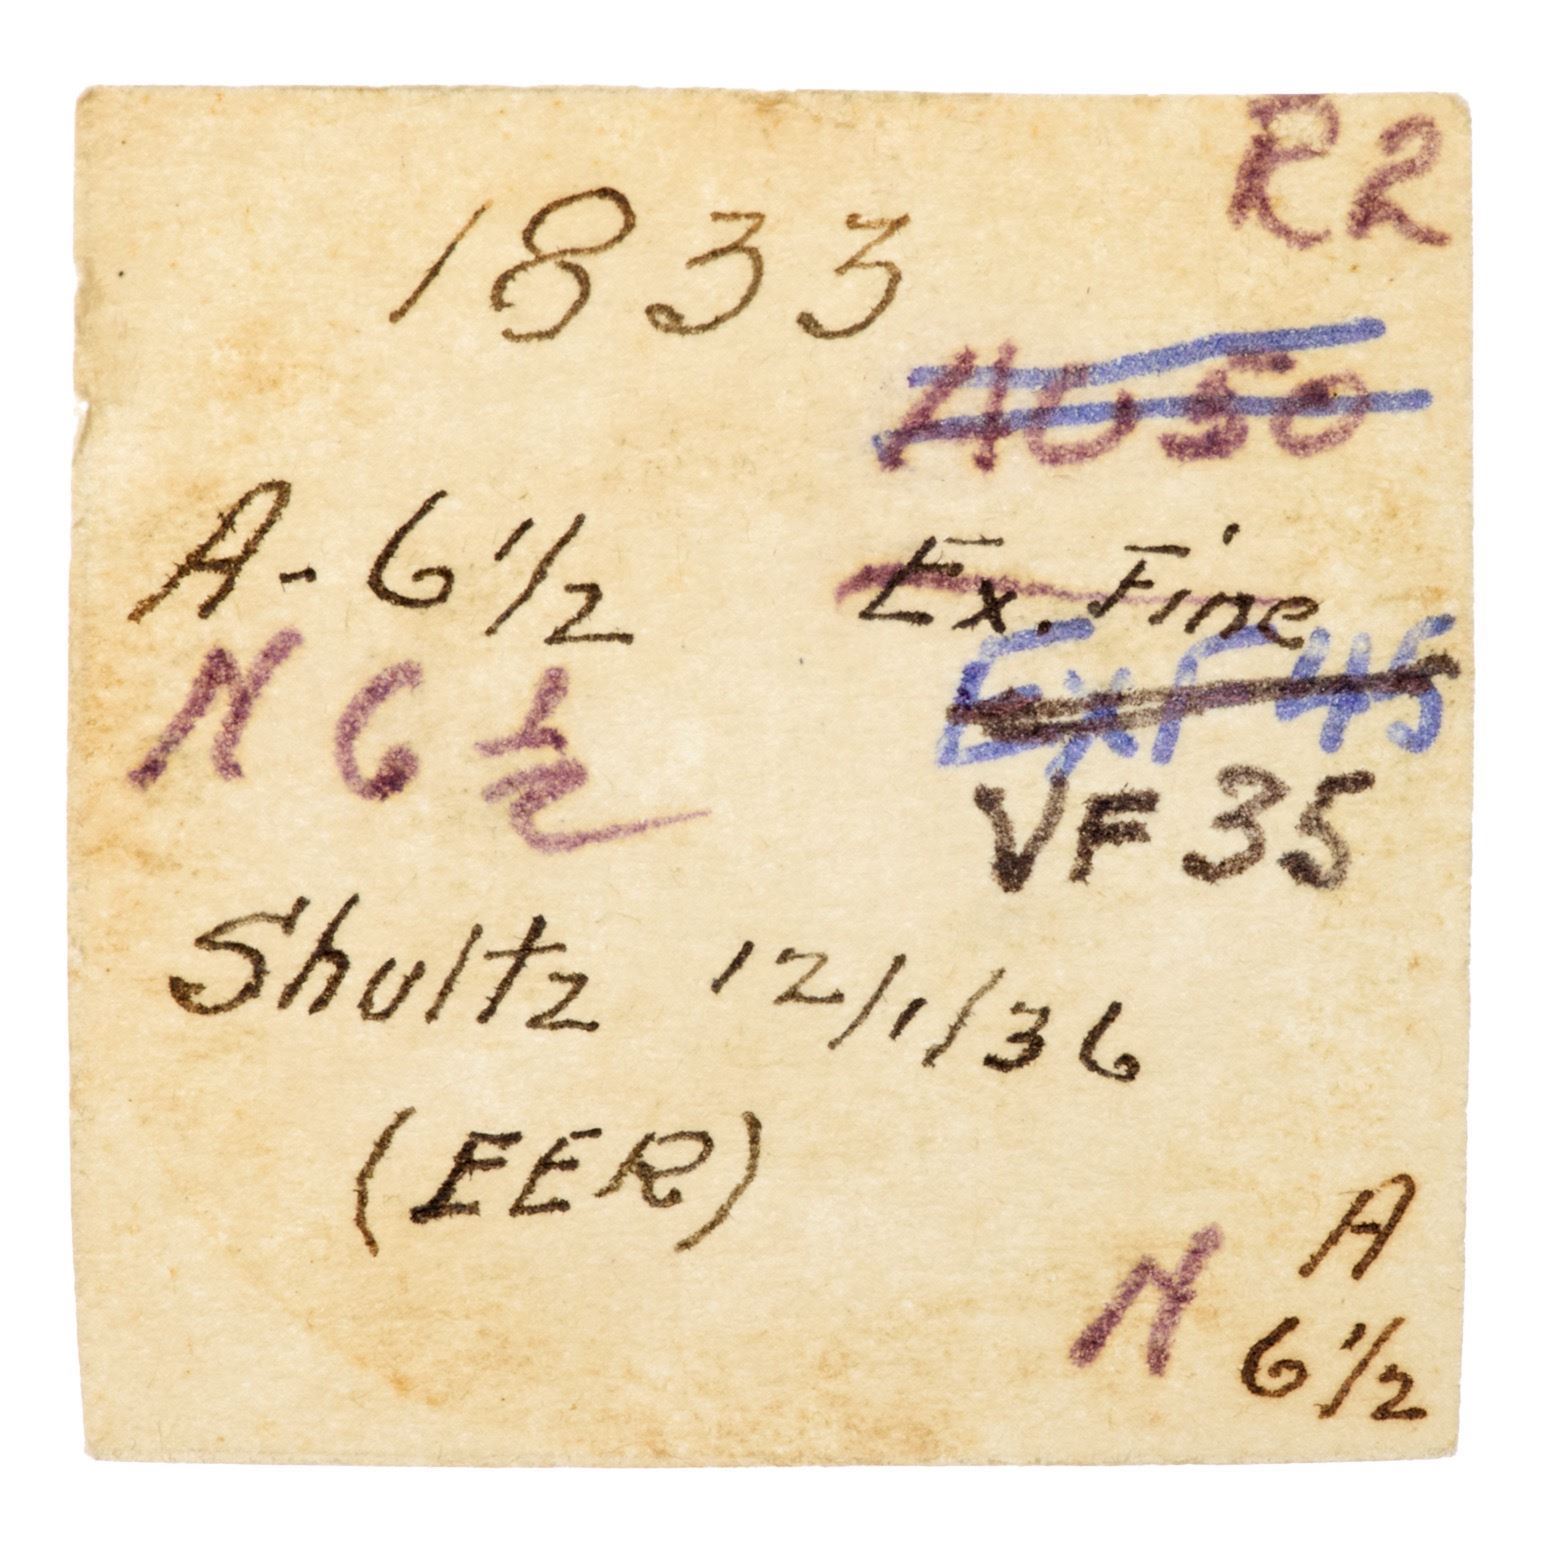 R2
1833
AU50
A-6 1/2
Ex. Fine
N 6 1/2
ExF 45
VF 35
Shultz 12/1/36
(EER)
A
N 6 1/2